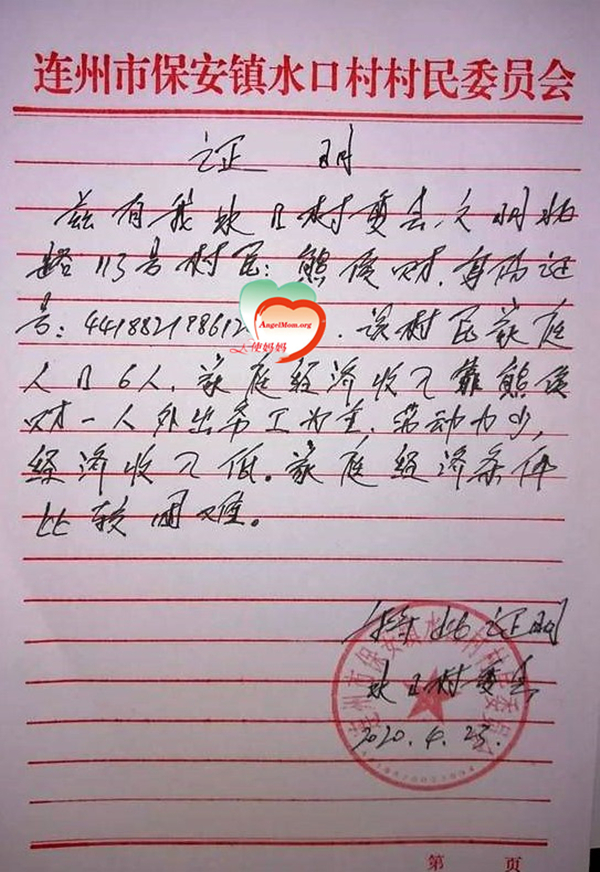 连州市保安镇水口村村民委员会
证 明
兹有我水口村委会文明北
路113号村民：熊俊财，身份证
号：441882198612
AngelMom.org
天使妈妈
．该村民家庭
人口6人，家庭经济收入靠熊俊
财一人外出务工为主，劳动力少，
经济收入低。家庭经济条件
比较困难。
特此证明
水口村委会
2020.4.23.
连州市保安镇水口村村民委员会
第 页